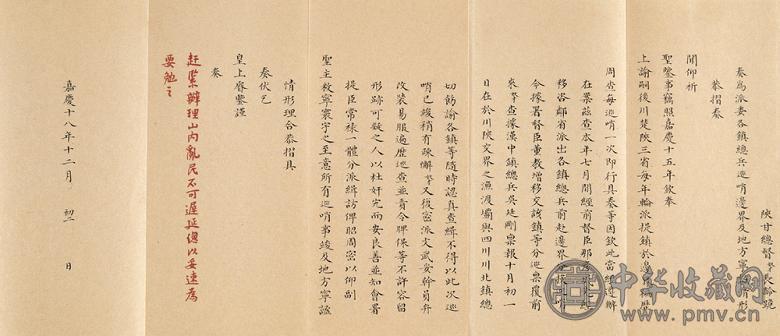 陝甘總督臣
奏為派委各鎮總兵巡哨邊界及地方寧謐情形
恭摺奏
聞仰祈
聖鑒事竊照嘉慶十五年欽奉
上諭嗣後川楚陝三省每年輪派提鎮於邊
周查每巡哨一次即行具奏等因欽此當經遵辦
在案茲查本年七月間經前督臣那
移咨鄰省派出各鎮總兵前赴邊界
今據署督臣董教增移交該鎮等分巡稟覆前
來臣查據漢中鎮總兵吳廷剛稟報十月初一
日在於川陝交界之漁渡壩與四川川北鎮總
切飭諭各鎮等隨時認真查緝不得以此次巡
哨已竣稍有疎懈臣又復密派文武妥幹員弁
改裝易服遍歷巡查並責令牌保等不許容留
形跡可疑之人以杜奸宄而安良善並知會署
提臣常祿一體分派緝訪俾昭周密以仰副
聖主敉寧寰宇之至意所有巡哨事竣及地方寧謐
情形理合恭摺具
奏伏乞
皇上睿鑒謹
奏
趕緊辦理山內亂民不可遲延總以妥速為
要勉之
嘉慶十八年十二月 初 日
中华收藏网
www.pmv.cn